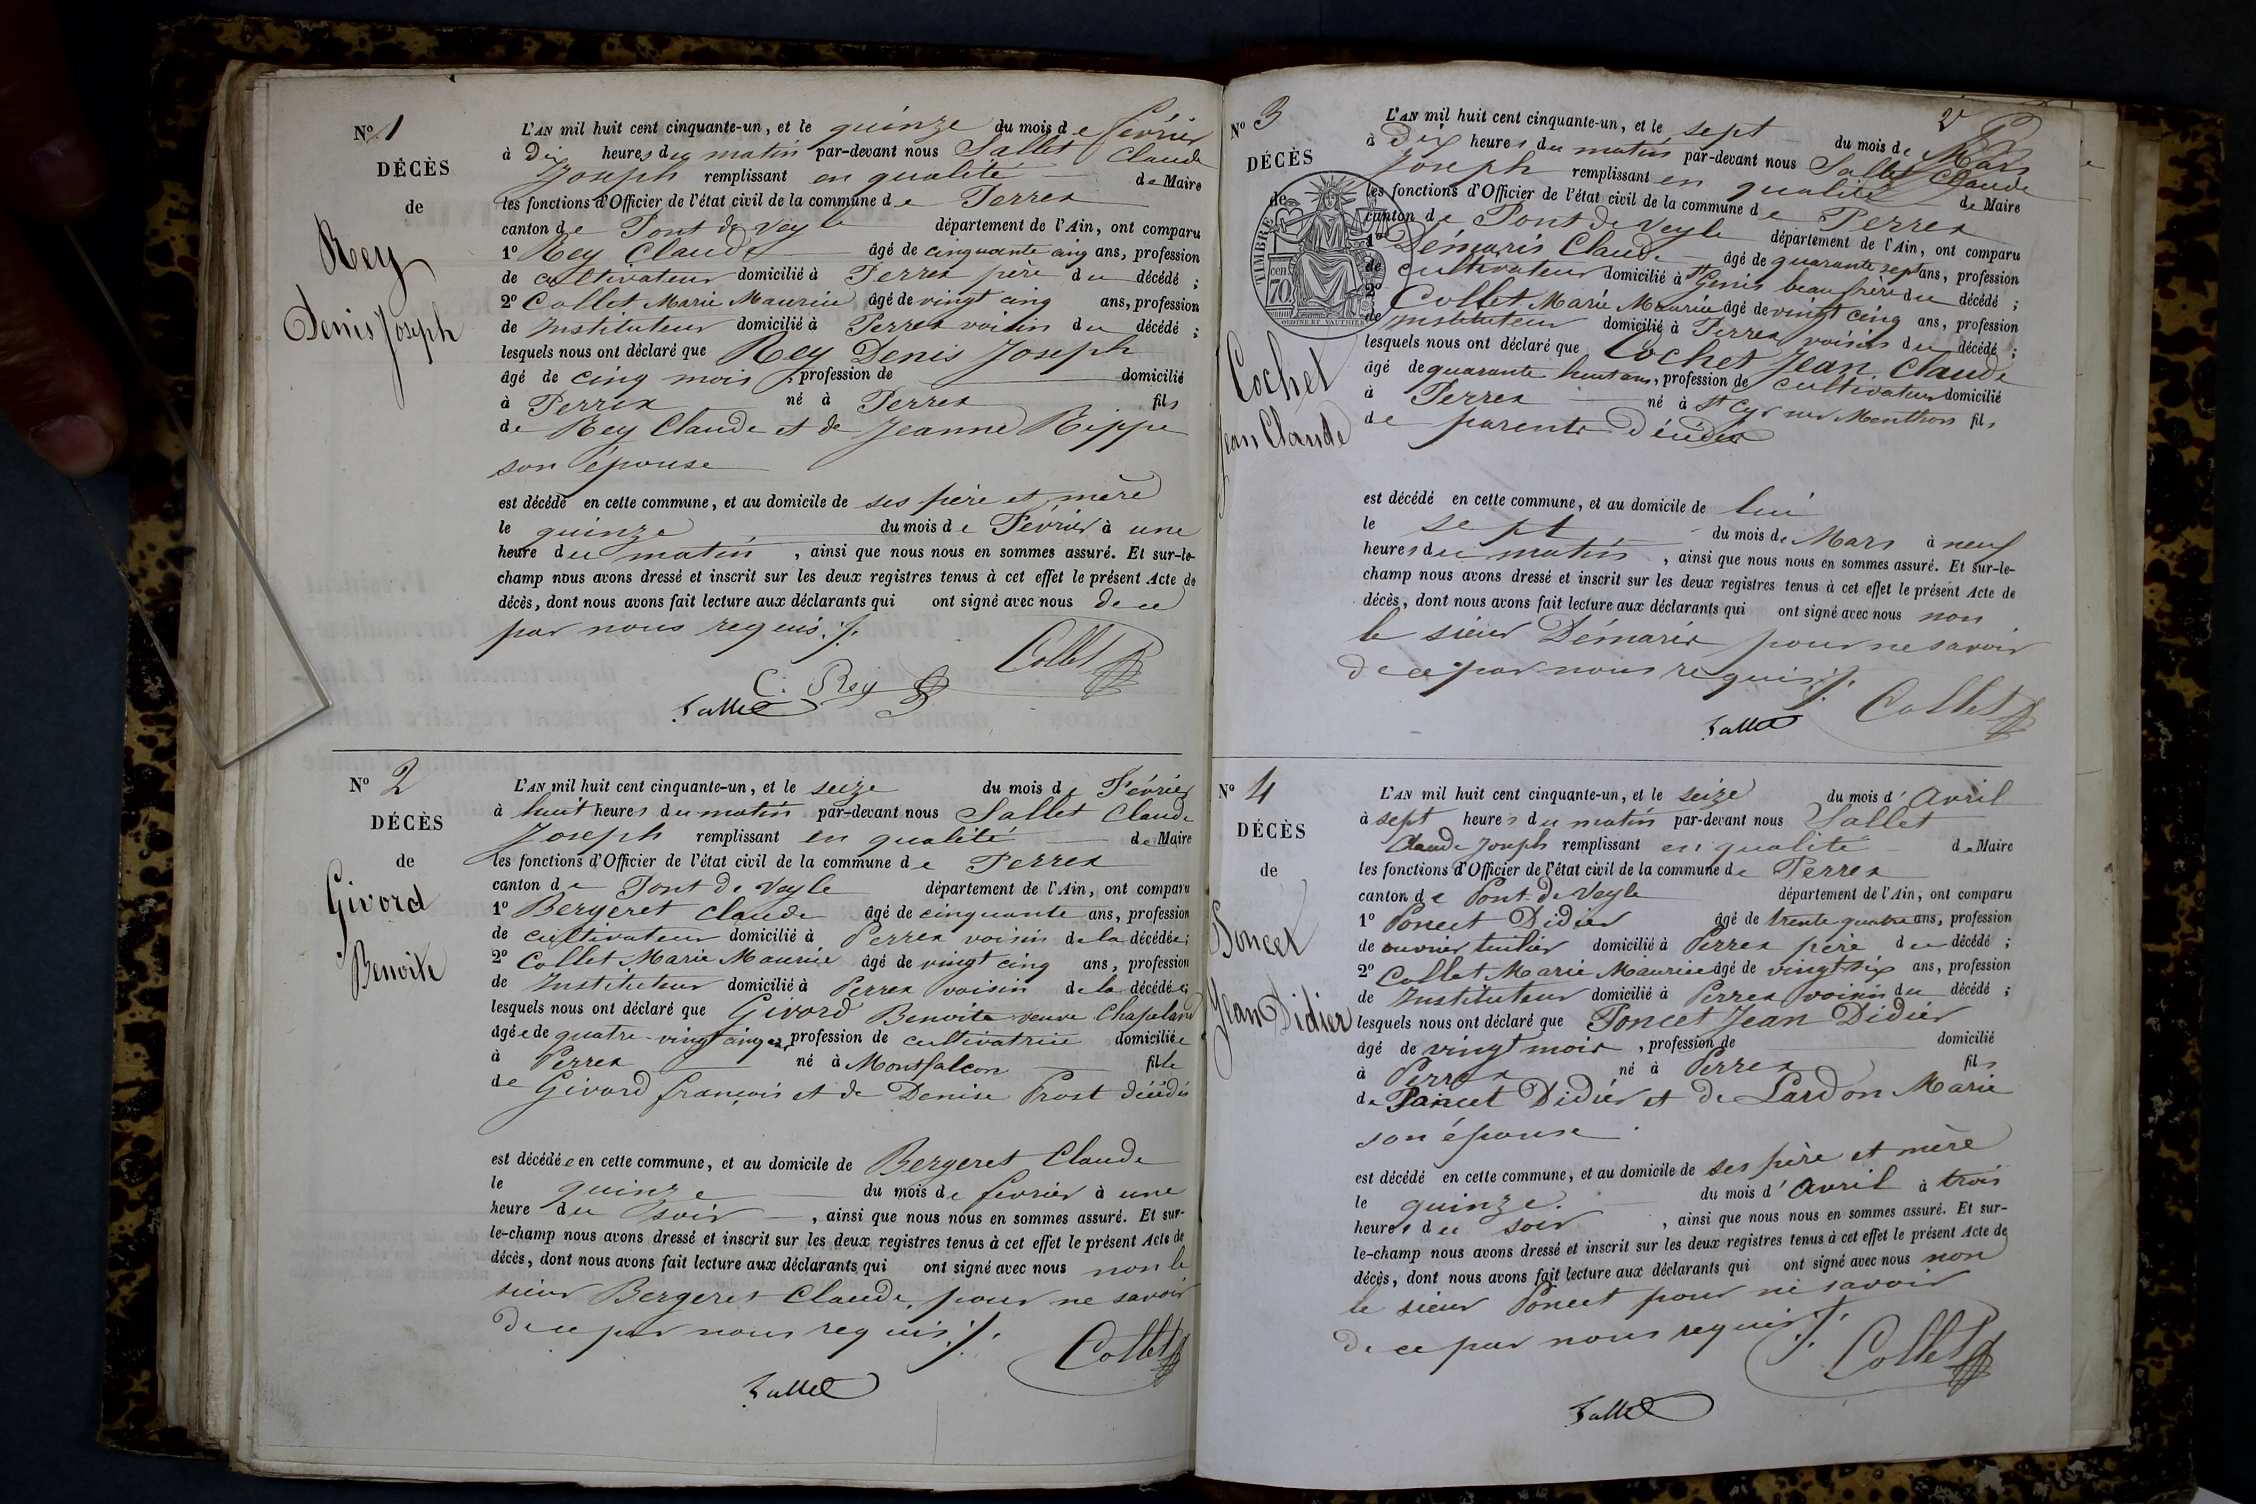 N° 1
DÉCÈS
de
Rey
Denis Joseph
L'AN mil huit cent cinquante-un, et le quinze du mois de février
à Dix heures du matin par-devant nous Sallet Claude
Joseph remplissant en qualité de Maire
les fonctions d'Officier de l'état civil de la commune de Perrex
canton de Pont de Veyle département de l'Ain, ont comparu
1° Rey Claude âgé de cinquante cinq ans, profession
de cultivateur domicilié à Perrex père du décédé ;
2° Collet Marie Maurice âgé de vingt cinq ans, profession
de Instituteur domicilié à Perrex voisin du décédé ;
lesquels nous ont déclaré que Rey Denis Joseph
âgé de cinq mois , profession de domicilié
à Perrex né à Perrex fils
de Rey Claude et de Jeanne Rippe
son épouse
est décédé en cette commune, et au domicile de ses père et mère
le quinze du mois de Février à une
heure du matin , ainsi que nous nous en sommes assuré. Et sur-le-
champ nous avons dressé et inscrit sur les deux registres tenus à cet effet le présent Acte de
décès, dont nous avons fait lecture aux déclarants qui ont signé avec nous de ce
par nous requis ./.
Collet
C. Rey
Sallet
N° 2
DÉCÈS
de
Givord
Benoite
L'AN mil huit cent cinquante-un, et le seize du mois de Février
à huit heures du matin par-devant nous Sallet Claude
Joseph remplissant en qualité de Maire
les fonctions d'Officier de l'état civil de la commune de Perrex
canton de Pont de Veyle département de l'Ain, ont comparu
1° Bergeret Claude âgé de cinquante ans, profession
de cultivateur domicilié à Perrex voisin de la décédée ;
2° Collet Marie Maurice âgé de vingt cinq ans, profession
de Instituteur domicilié à Perrex voisin de la décédée ;
lesquels nous ont déclaré que Givord Benoite veuve Chapeland
âgée de quatre-vingt cinq ans, profession de cultivatrice domiciliée
à Perrex né à Montfalcon fille
de Givord françois et de Denise Prost décédés
est décédée en cette commune, et au domicile de Bergeret Claude
le quinze du mois de février à une
heure du soir , ainsi que nous nous en sommes assuré. Et sur-
le-champ nous avons dressé et inscrit sur les deux registres tenus à cet effet le présent Acte de
décès, dont nous avons fait lecture aux déclarants qui ont signé avec nous non le
sieur Bergeret Claude, pour ne savoir
de ce par nous requis ./.
Collet
Sallet
2
N° 3
DÉCÈS
de
TIMBRE
cen
70
Cochet
Jean Claude
L'AN mil huit cent cinquante-un, et le sept du mois de Mars
à Dix heures du matin par-devant nous Sallet Claude
Joseph remplissant en qualité de Maire
les fonctions d'Officier de l'état civil de la commune de Perrex
canton de Pont de Veyle département de l'Ain, ont comparu
1° Démaris Claude âgé de quarante sept ans, profession
de cultivateur domicilié à St Genis beau frère du décédé ;
2° Collet Marie Maurice âgé de vingt cinq ans, profession
de instituteur domicilié à Perrex voisin du décédé ;
lesquels nous ont déclaré que Cochet Jean Claude
âgé de quarante huit ans, profession de cultivateur domicilié
à Perrex né à St Cyr sur Menthon fils
de parents décédés
est décédé en cette commune, et au domicile de lui
le sept du mois de Mars à neuf
heures du matin , ainsi que nous nous en sommes assuré. Et sur-le-
champ nous avons dressé et inscrit sur les deux registres tenus à cet effet le présent Acte de
décès, dont nous avons fait lecture aux déclarants qui ont signé avec nous non
le sieur Démaris pour ne savoir
de ce par nous requis ./.
Collet
Sallet
N° 4
DÉCÈS
de
Poncet
Jean Didier
L'AN mil huit cent cinquante-un, et le seize du mois d'Avril
à sept heures du matin par-devant nous Sallet
Claude Joseph remplissant en qualité de Maire
les fonctions d'Officier de l'état civil de la commune de Perrex
canton de Pont de Veyle département de l'Ain, ont comparu
1° Poncet Didier âgé de trente quatre ans, profession
de ouvrier tuilier domicilié à Perrex père du décédé ;
2° Collet Marie Maurice âgé de vingt six ans, profession
de Instituteur domicilié à Perrex voisin du décédé ;
lesquels nous ont déclaré que Poncet Jean Didier
âgé de vingt mois , profession de domicilié
à Perrex né à Perrex fils
de Poncet Didier et de Lardon Marie
son épouse
est décédé en cette commune, et au domicile de ses père et mère
le quinze du mois d'Avril à trois
heures du soir , ainsi que nous nous en sommes assuré. Et sur-
le-champ nous avons dressé et inscrit sur les deux registres tenus à cet effet le présent Acte de
décès, dont nous avons fait lecture aux déclarants qui ont signé avec nous non
le sieur Poncet pour ne savoir
de ce par nous requis ./.
Collet
Sallet